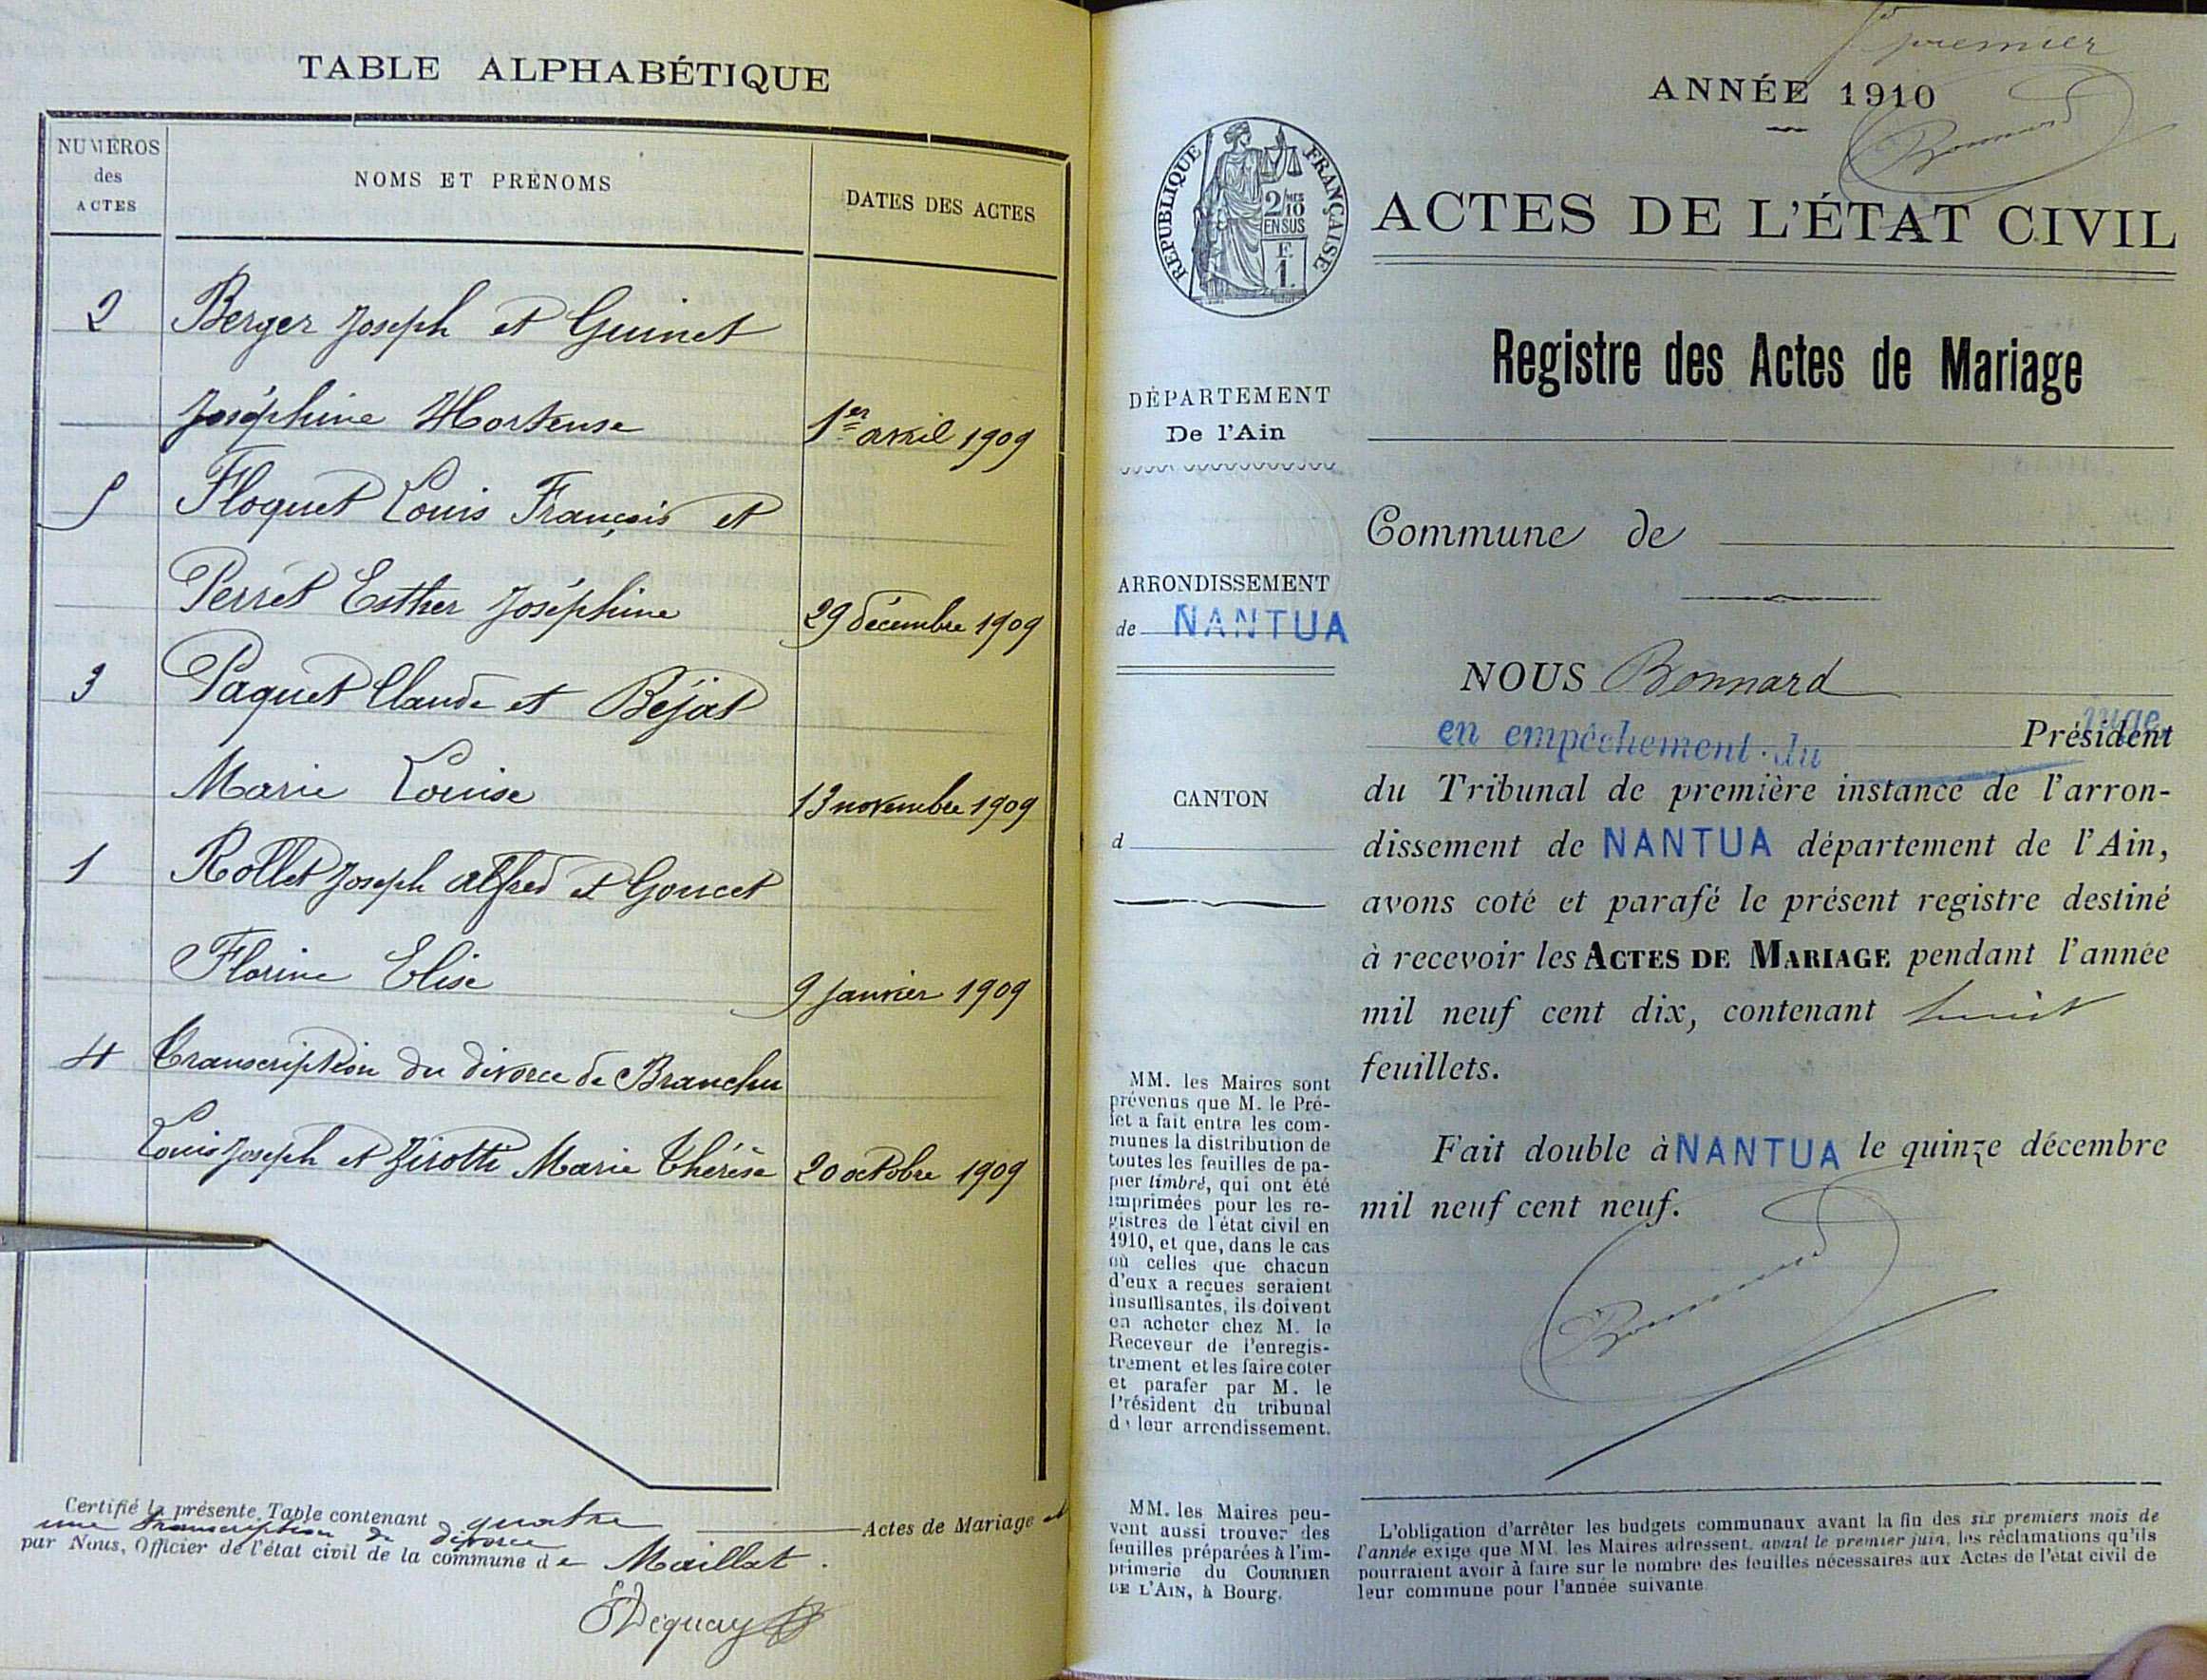 TABLE ALPHABÉTIQUE
NUMÉROS
des
ACTES
NOMS ET PRÉNOMS
DATES DES ACTES
2 Berger Joseph et Guinet
Joséphine Hortense 1er avril 1909
5 Floquet Louis François et
Perret Esther Joséphine 29 décembre 1909
3 Paquet Claude et Béjat
Marie Louise 13 novembre 1909
1 Rollet Joseph Alfred et Goucet
Florine Elise 9 Janvier 1909
4 Transcription du divorce de Branchu
Louis Joseph et Zirotti Marie Thérèse 20 octobre 1909
Certifié la présente Table contenant quatre Actes de Mariage et
une transcription de divorce
par Nous, Officier de l'état civil de la commune de Maillat.
premier
ANNÉE 1910
Bonnard
RÉPUBLIQUE FRANÇAISE
2/10MES
EN SUS
F.
1.
ACTES DE L'ÉTAT CIVIL
Registre des Actes de Mariage
DÉPARTEMENT
De l'Ain
ARRONDISSEMENT
de NANTUA
CANTON
d
Commune de
NOUS Bonnard
juge
en empêchement du Président
du Tribunal de première instance de l'arron-
dissement de NANTUA département de l'Ain,
avons coté et parafé le présent registre destiné
à recevoir les ACTES DE MARIAGE pendant l'année
mil neuf cent dix, contenant huit
feuillets.
Fait double à NANTUA le quinze décembre
mil neuf cent neuf.
Bonnard
MM. les Maires sont
prévenus que M. le Pré-
fet a fait entre les com-
munes la distribution de
toutes les feuilles de pa-
pier timbré, qui ont été
imprimées pour les re-
gistres de l'état civil en
1910, et que, dans le cas
où celles que chacun
d'eux a reçues seraient
insuffisantes, ils doivent
en acheter chez M. le
Receveur de l'enregis-
trement et les faire coter
et parafer par M. le
Président du tribunal
de leur arrondissement.
MM. les Maires peu-
vent aussi trouver des
feuilles préparées à l'im-
primerie du COURRIER
DE L'AIN, à Bourg.
L'obligation d'arrêter les budgets communaux avant la fin des six premiers mois de
l'année exige que MM. les Maires adressent, avant le premier juin, les réclamations qu'ils
pourraient avoir à faire sur le nombre des feuilles nécessaires aux Actes de l'état civil de
leur commune pour l'année suivante.